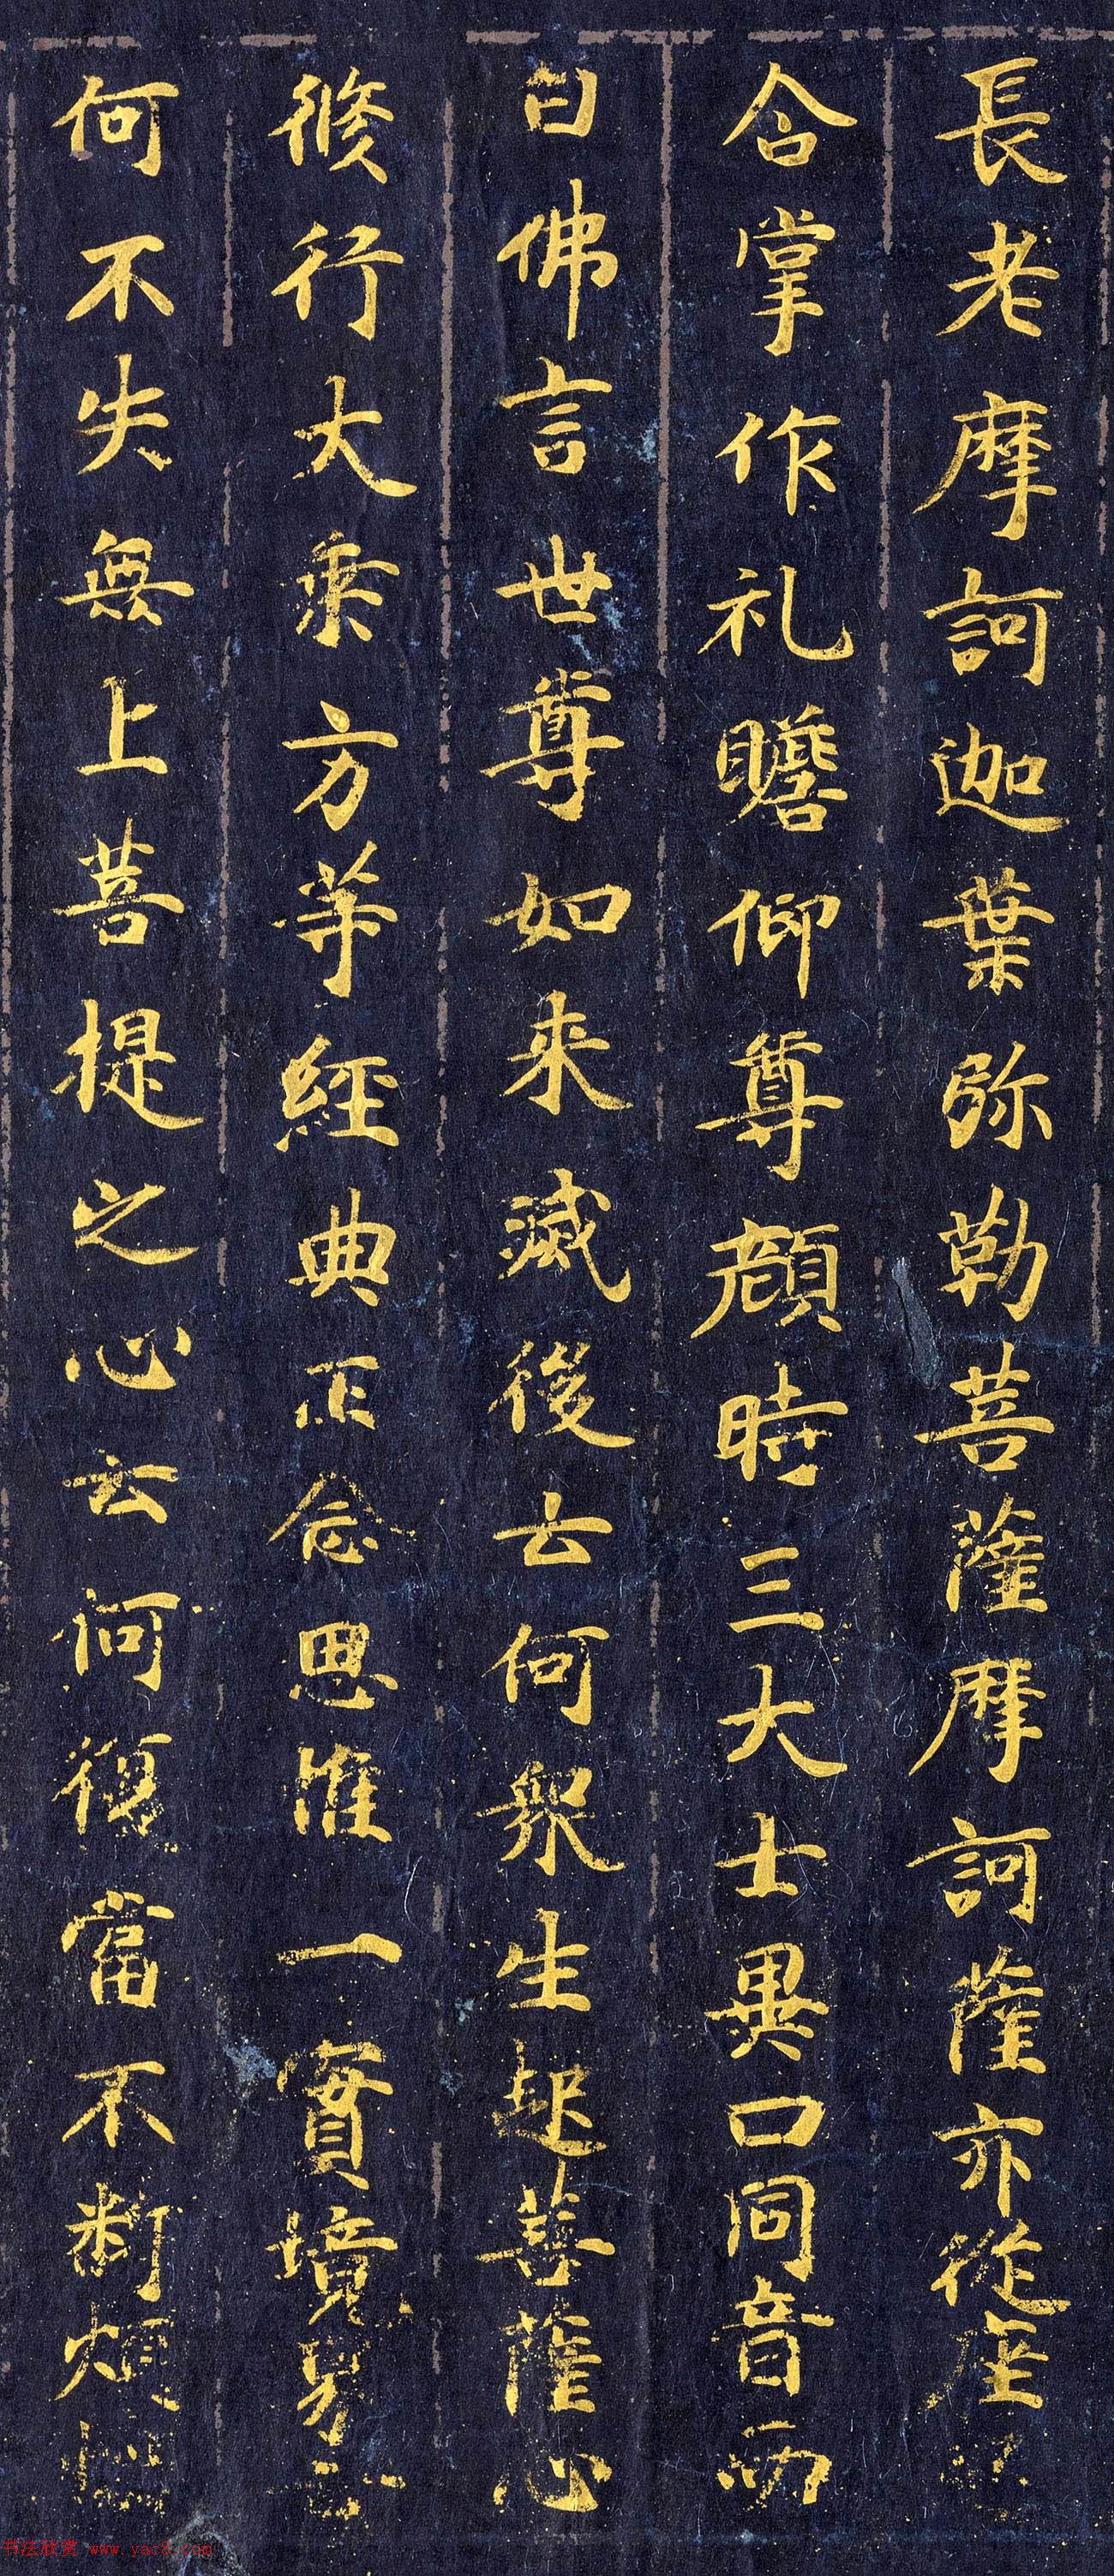 長老摩訶迦葉弥勒菩薩摩訶薩亦從座
合掌作礼瞻仰尊顔時三大士異口同音而
白佛言世尊如来滅後云何衆生起菩薩心
修行大乗方等經典正念思惟一實境界云
何不失無上菩提之心云何復當不断煩惱
书法欣赏 www.yac8.com